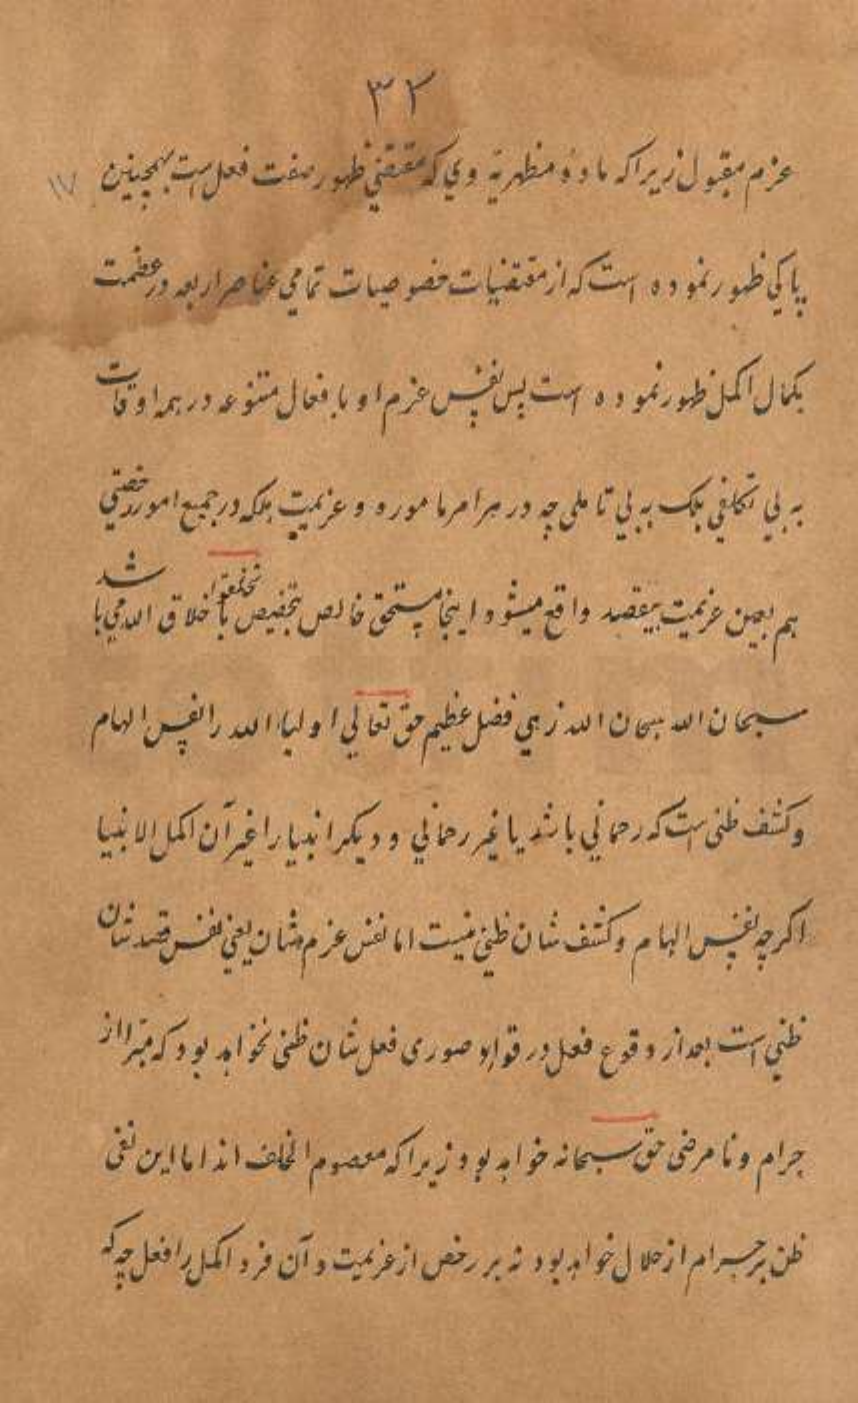 ۳۲
۱۷
عزم مقبول زیراکه ماده مظهریة وی که مقتضی ظهور صفت فعل است بهمچنین
پاکی ظهور نموده است که از مقتضیات خصوصیات تمامی عناصر اربعه در عظمت
بکمال اکمل ظهور نموده است پس نفس عزم او بافعال متنوعه در همه اوقات
به بی تکلفی بلکه به بی تاملی چه در هر امر ماموره و عزیمت بلکه در جمیع امور رخصتی
هم بعین عزیمت بیقصد واقع میشود و اینجا مستحق خالص بتخصیص باخلاق الله می باشد
سبحان الله سبحان الله زهی فضل عظیم حق تعالی اولیاء الله را نفس الهام
و کشف ظنی است که رحمانی باشد یا غیر رحمانی و دیگر انبیا را غیر آن اکمل الانبیا
اگرچه نفس الهام و کشف شان ظنی نیست اما نفس عزم شان یعنی نفس قصد شان
ظنی است بعد از وقوع فعل در صوری فعل شان ظنی نخواهد بود که مبرا از
حرام و نامرضی حق سبحانه خواهد بود زیراکه معصوم اند اما این نفی
ظن بر حرام از حلال خواهد بود نه بر رخص از عزیمت و آن فرد اکمل را فعل چه که